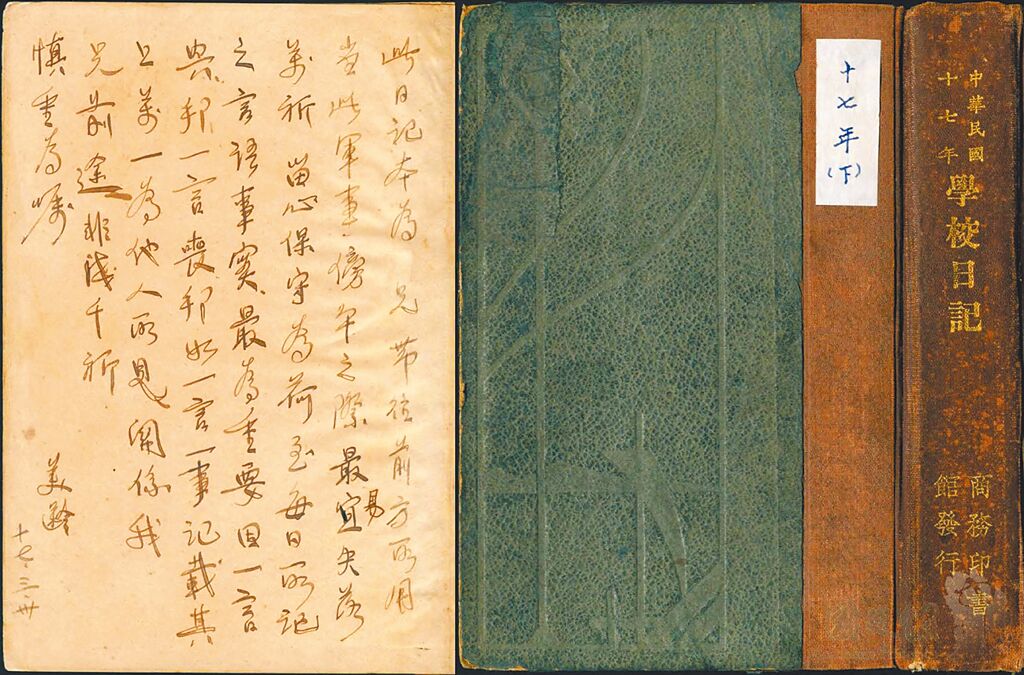 此日記本為 兄帶往前方所用
當此軍事傍午之際最宜失落
易
萬祈 留心保守為荷至每日所記
之言語事實、最為重要因一言
興邦、一言喪邦如一言一事記載其
上萬一為他人所見關係我
兄前途非淺千祈
慎重為囑
美齡
十七、三、卅
十七年
(下)
中華民國
十七年
學校日記
商務印書
館發行